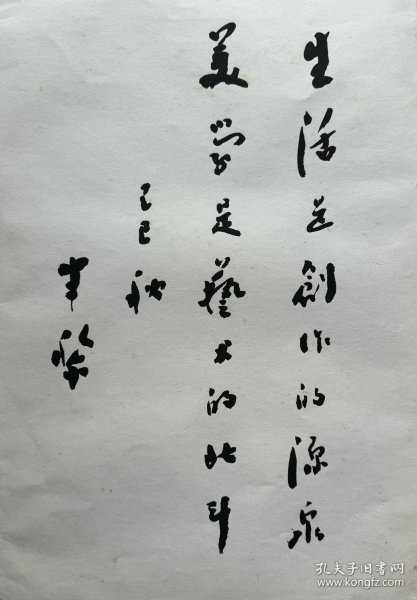 生活是創作的源泉
美學是藝术的北斗
己巳
秋
孔夫子旧书网
www.kongfz.com